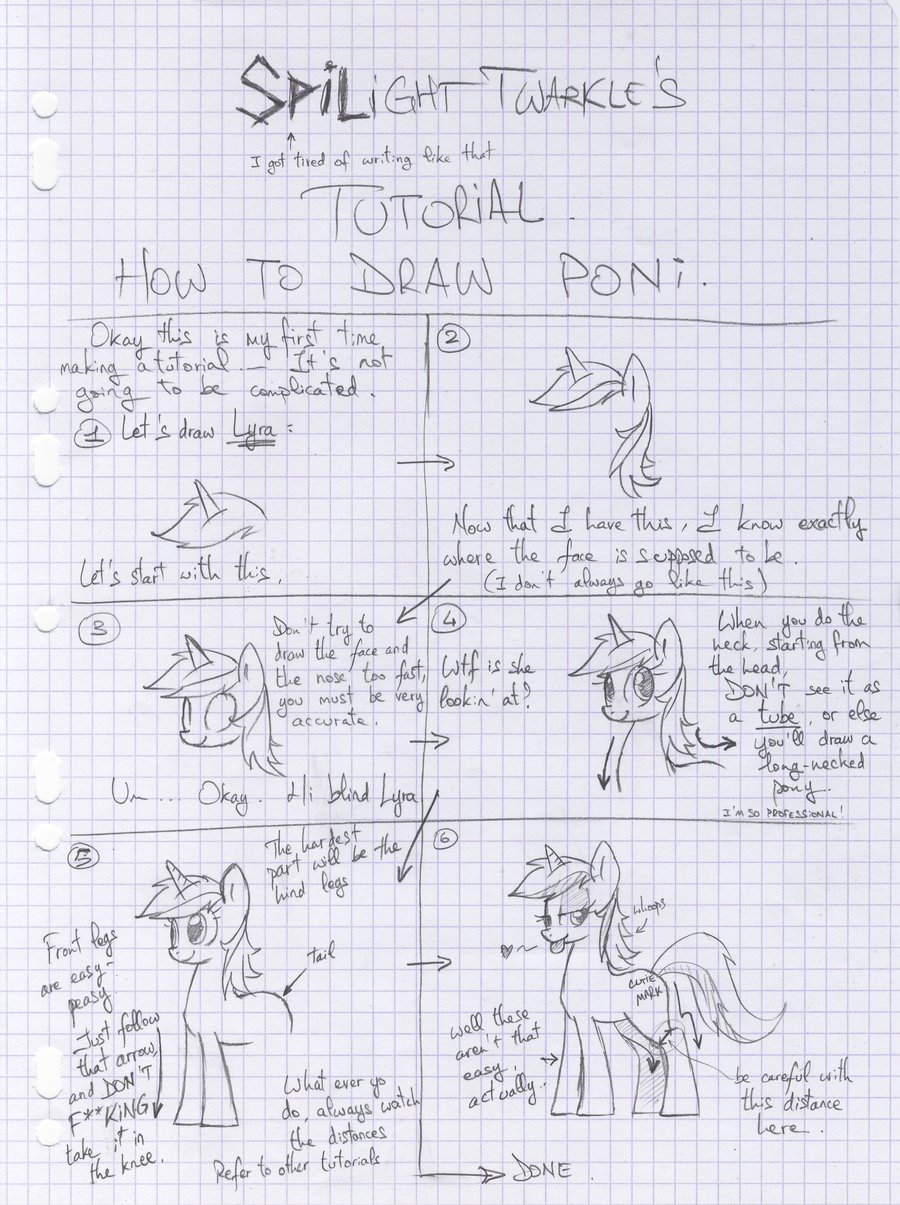 SPiLiGHT TWARKLE'S
I got tired of writing like that
TUTORiAL.
HOW TO DRAW PONi.
Okay this is my first time
making a tutorial.— It's not
going to be complicated.
1 Let's draw Lyra :
Let's start with this.
2
Now that I have this, I know exactly
where the face is supposed to be.
(I don't always go like this)
3
Don't try to
draw the face and
the nose too fast,
you must be very
accurate.
Um .... Okay. blind Lyra
4
Wtf is she
lookin' at?
When you do the
neck, starting from
the head,
DON'T see it as
a tube, or else
you'll draw a
long-necked
pony.
I'M SO PROFESSIONAL!
5
The hardest
part will be the
hind legs
tail
Front legs
are easy-
peasy.
Just follow
that arrow,
and DON'T
F**KiNG
take it in
the knee.
What ever yo
do, always watch
the distances
Refer to other tutorials
6
whoops
CUTIE
MARK
well these
aren't that
easy,
actually..
be careful with
this distance
here.
DONE